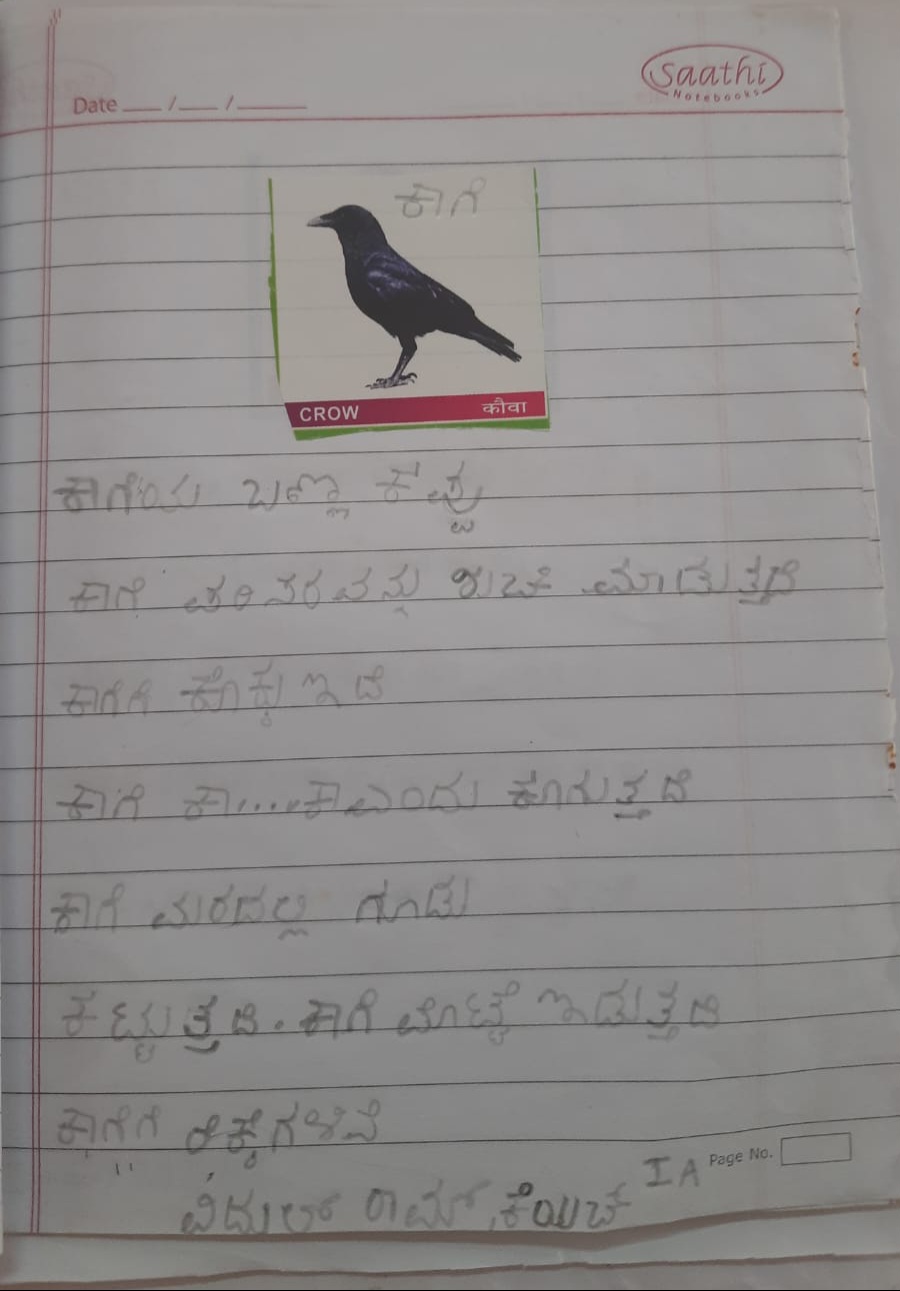 Saathi
Notebooks
Date __/__/__
ಕಾಗೆ
CROW कौवा
ಕಾಗೆಯ ಬಣ್ಣ ಕಪ್ಪು
ಕಾಗೆ ಪರಿಸರವನ್ನು ಶುಚಿ ಮಾಡುತ್ತದೆ
ಕಾಗೆಗೆ ಕೊಕ್ಕು ಇದೆ
ಕಾಗೆ ಕಾ....ಕಾ ಎಂದು ಕೂಗುತ್ತದೆ
ಕಾಗೆ ಮರದಲ್ಲಿ ಗೂಡು
ಕಟ್ಟುತ್ತದೆ. ಕಾಗೆ ಮೊಟ್ಟೆ ಇಡುತ್ತದೆ
ಕಾಗೆಗೆ ರೆಕ್ಕೆಗಳಿವೆ
IA Page No.